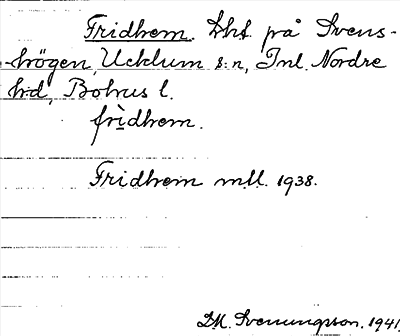 Fridhem. Lht. på Svens-
högen, Ucklum s:n, Inl. Nordre
hd, Bohus l.
frìdhem.
Fridhem mtl. 1938.
D.M. Svenungsson. 1941.